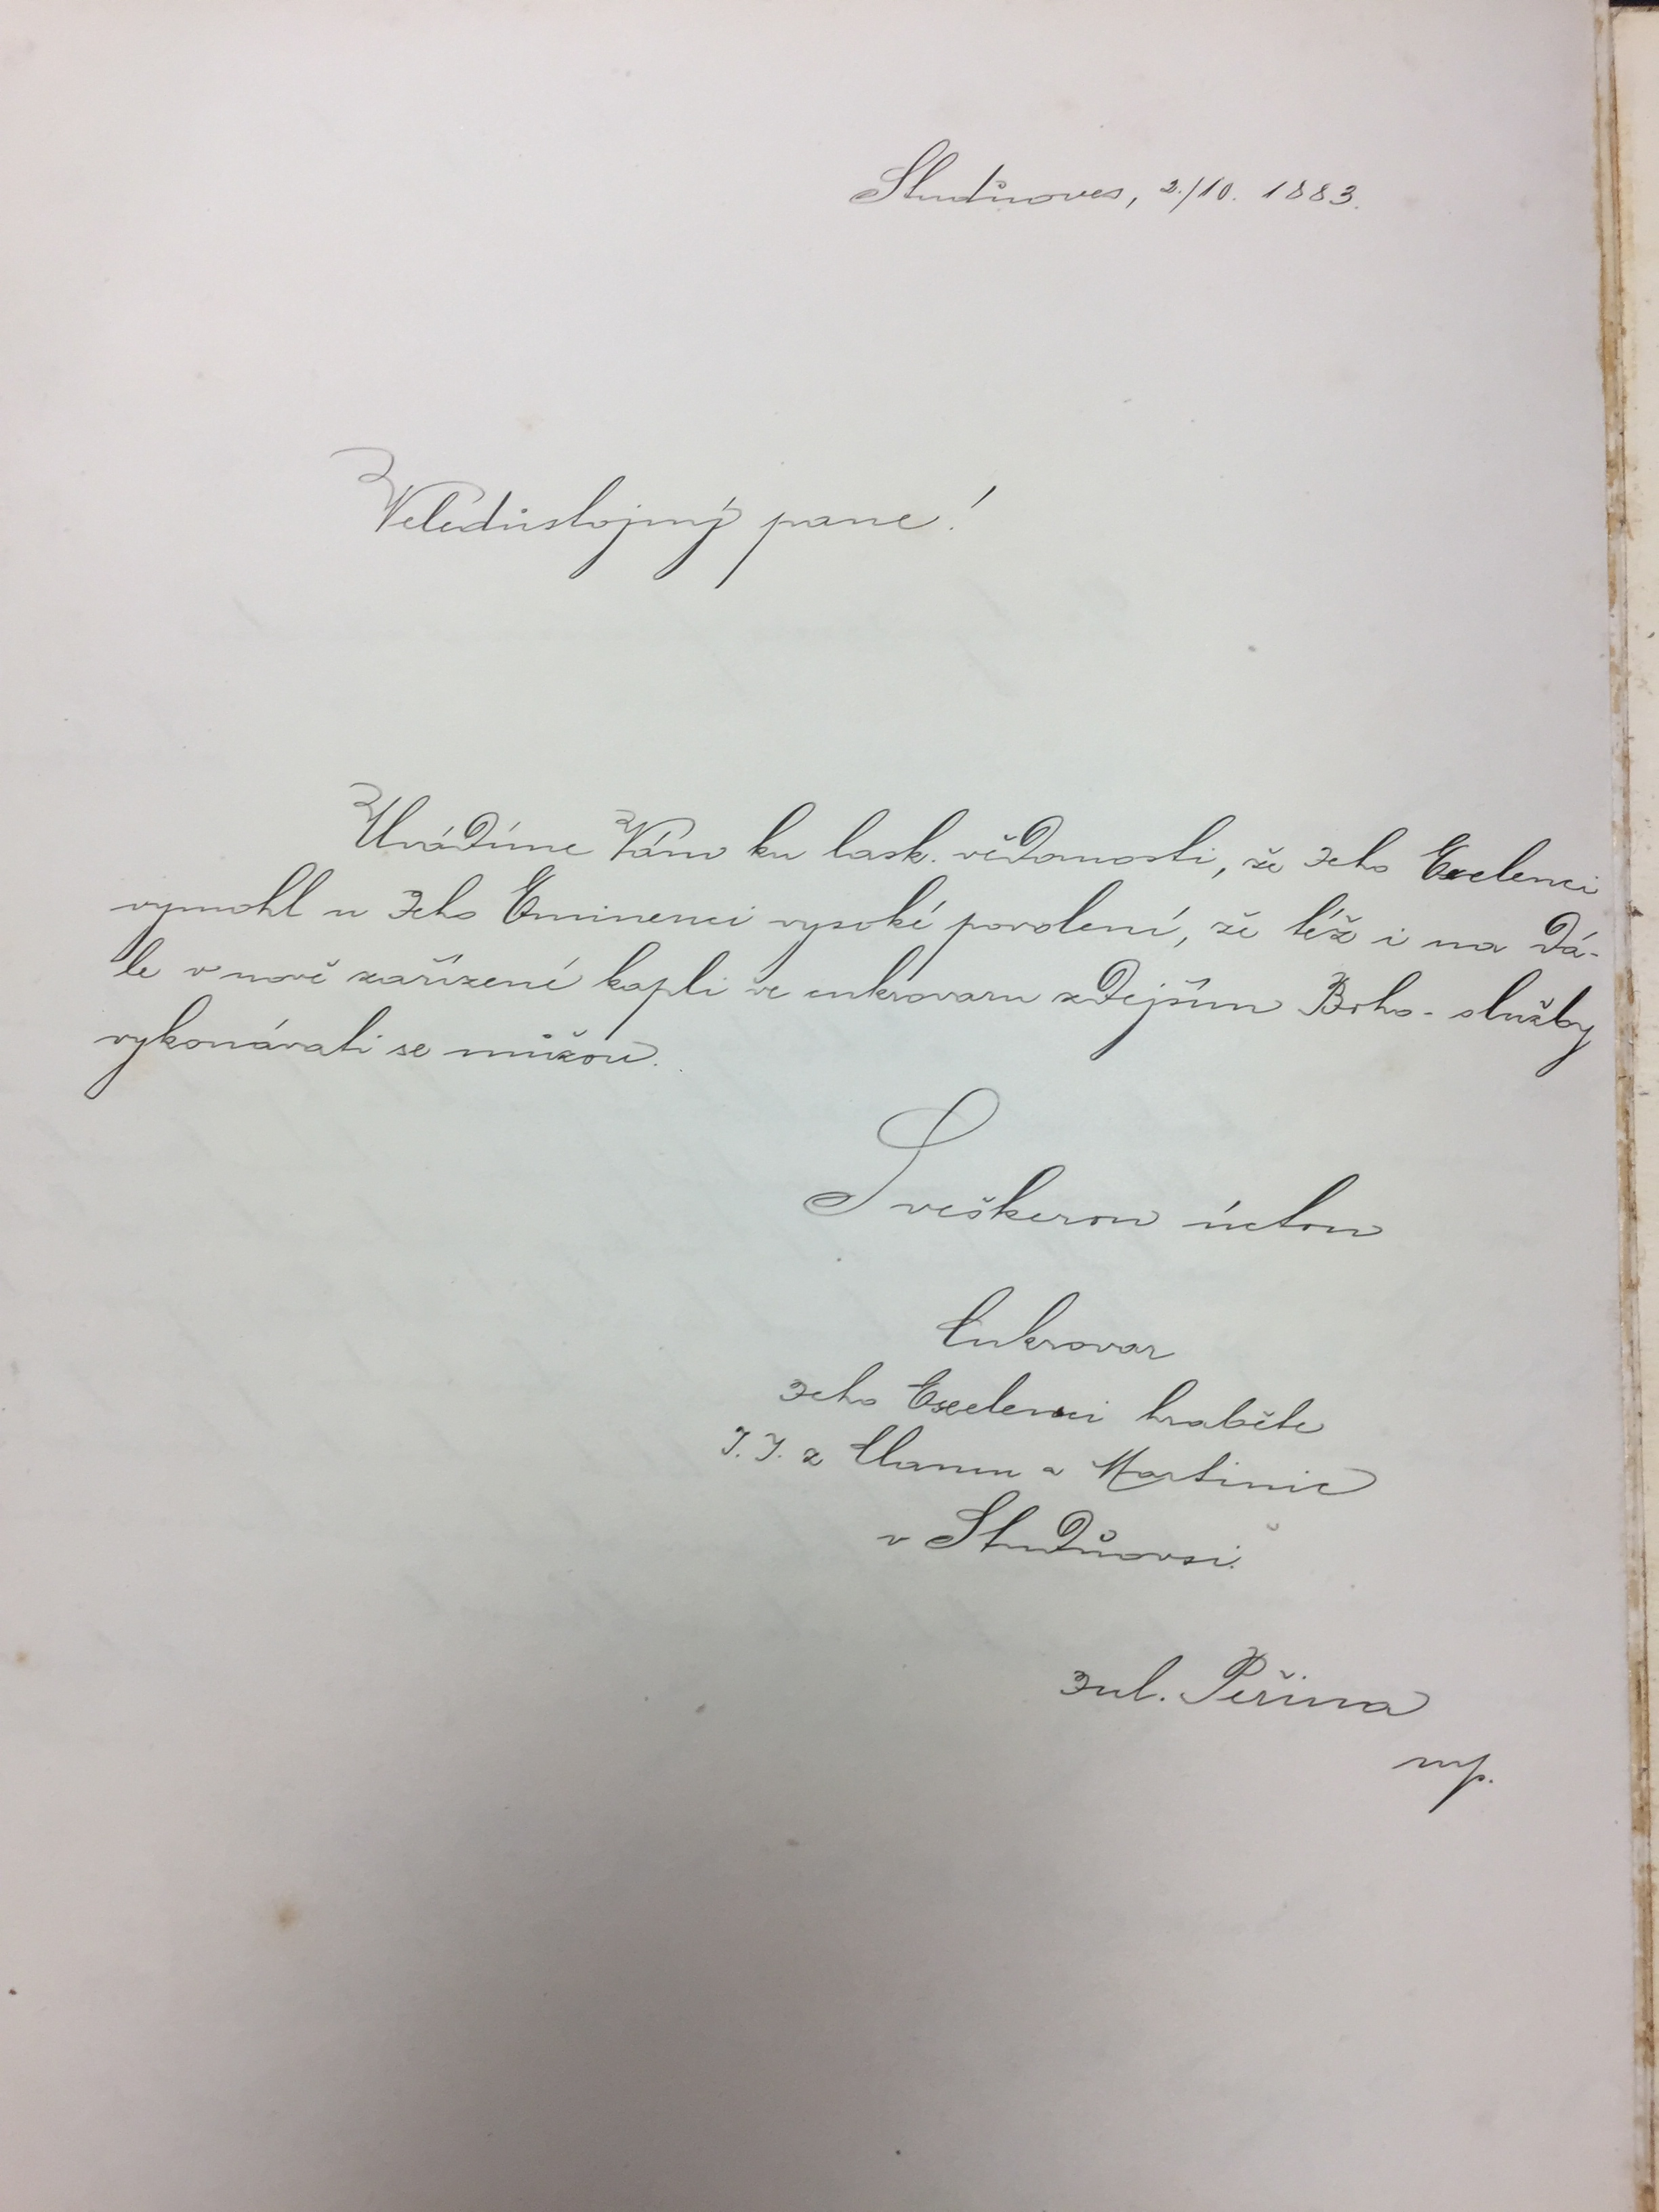 Studňoves, 2./10. 1883.
Veledůstojný pane!
Uvádíme Vám ku lask. vědomosti, že Jeho Excelenci
vymohl u Jeho Eminenci vysoké povolení, že též i na dá-
le v nově zařízené kapli ve cukrovaru zdejším Boho- služby
vykonávati se můžou.
S veškerou úctou
Cukrovar
Jeho Excelenci hraběte
J. J. z Clamu a Martinic
v Studňovsi.
Jul. Peřina
mp.